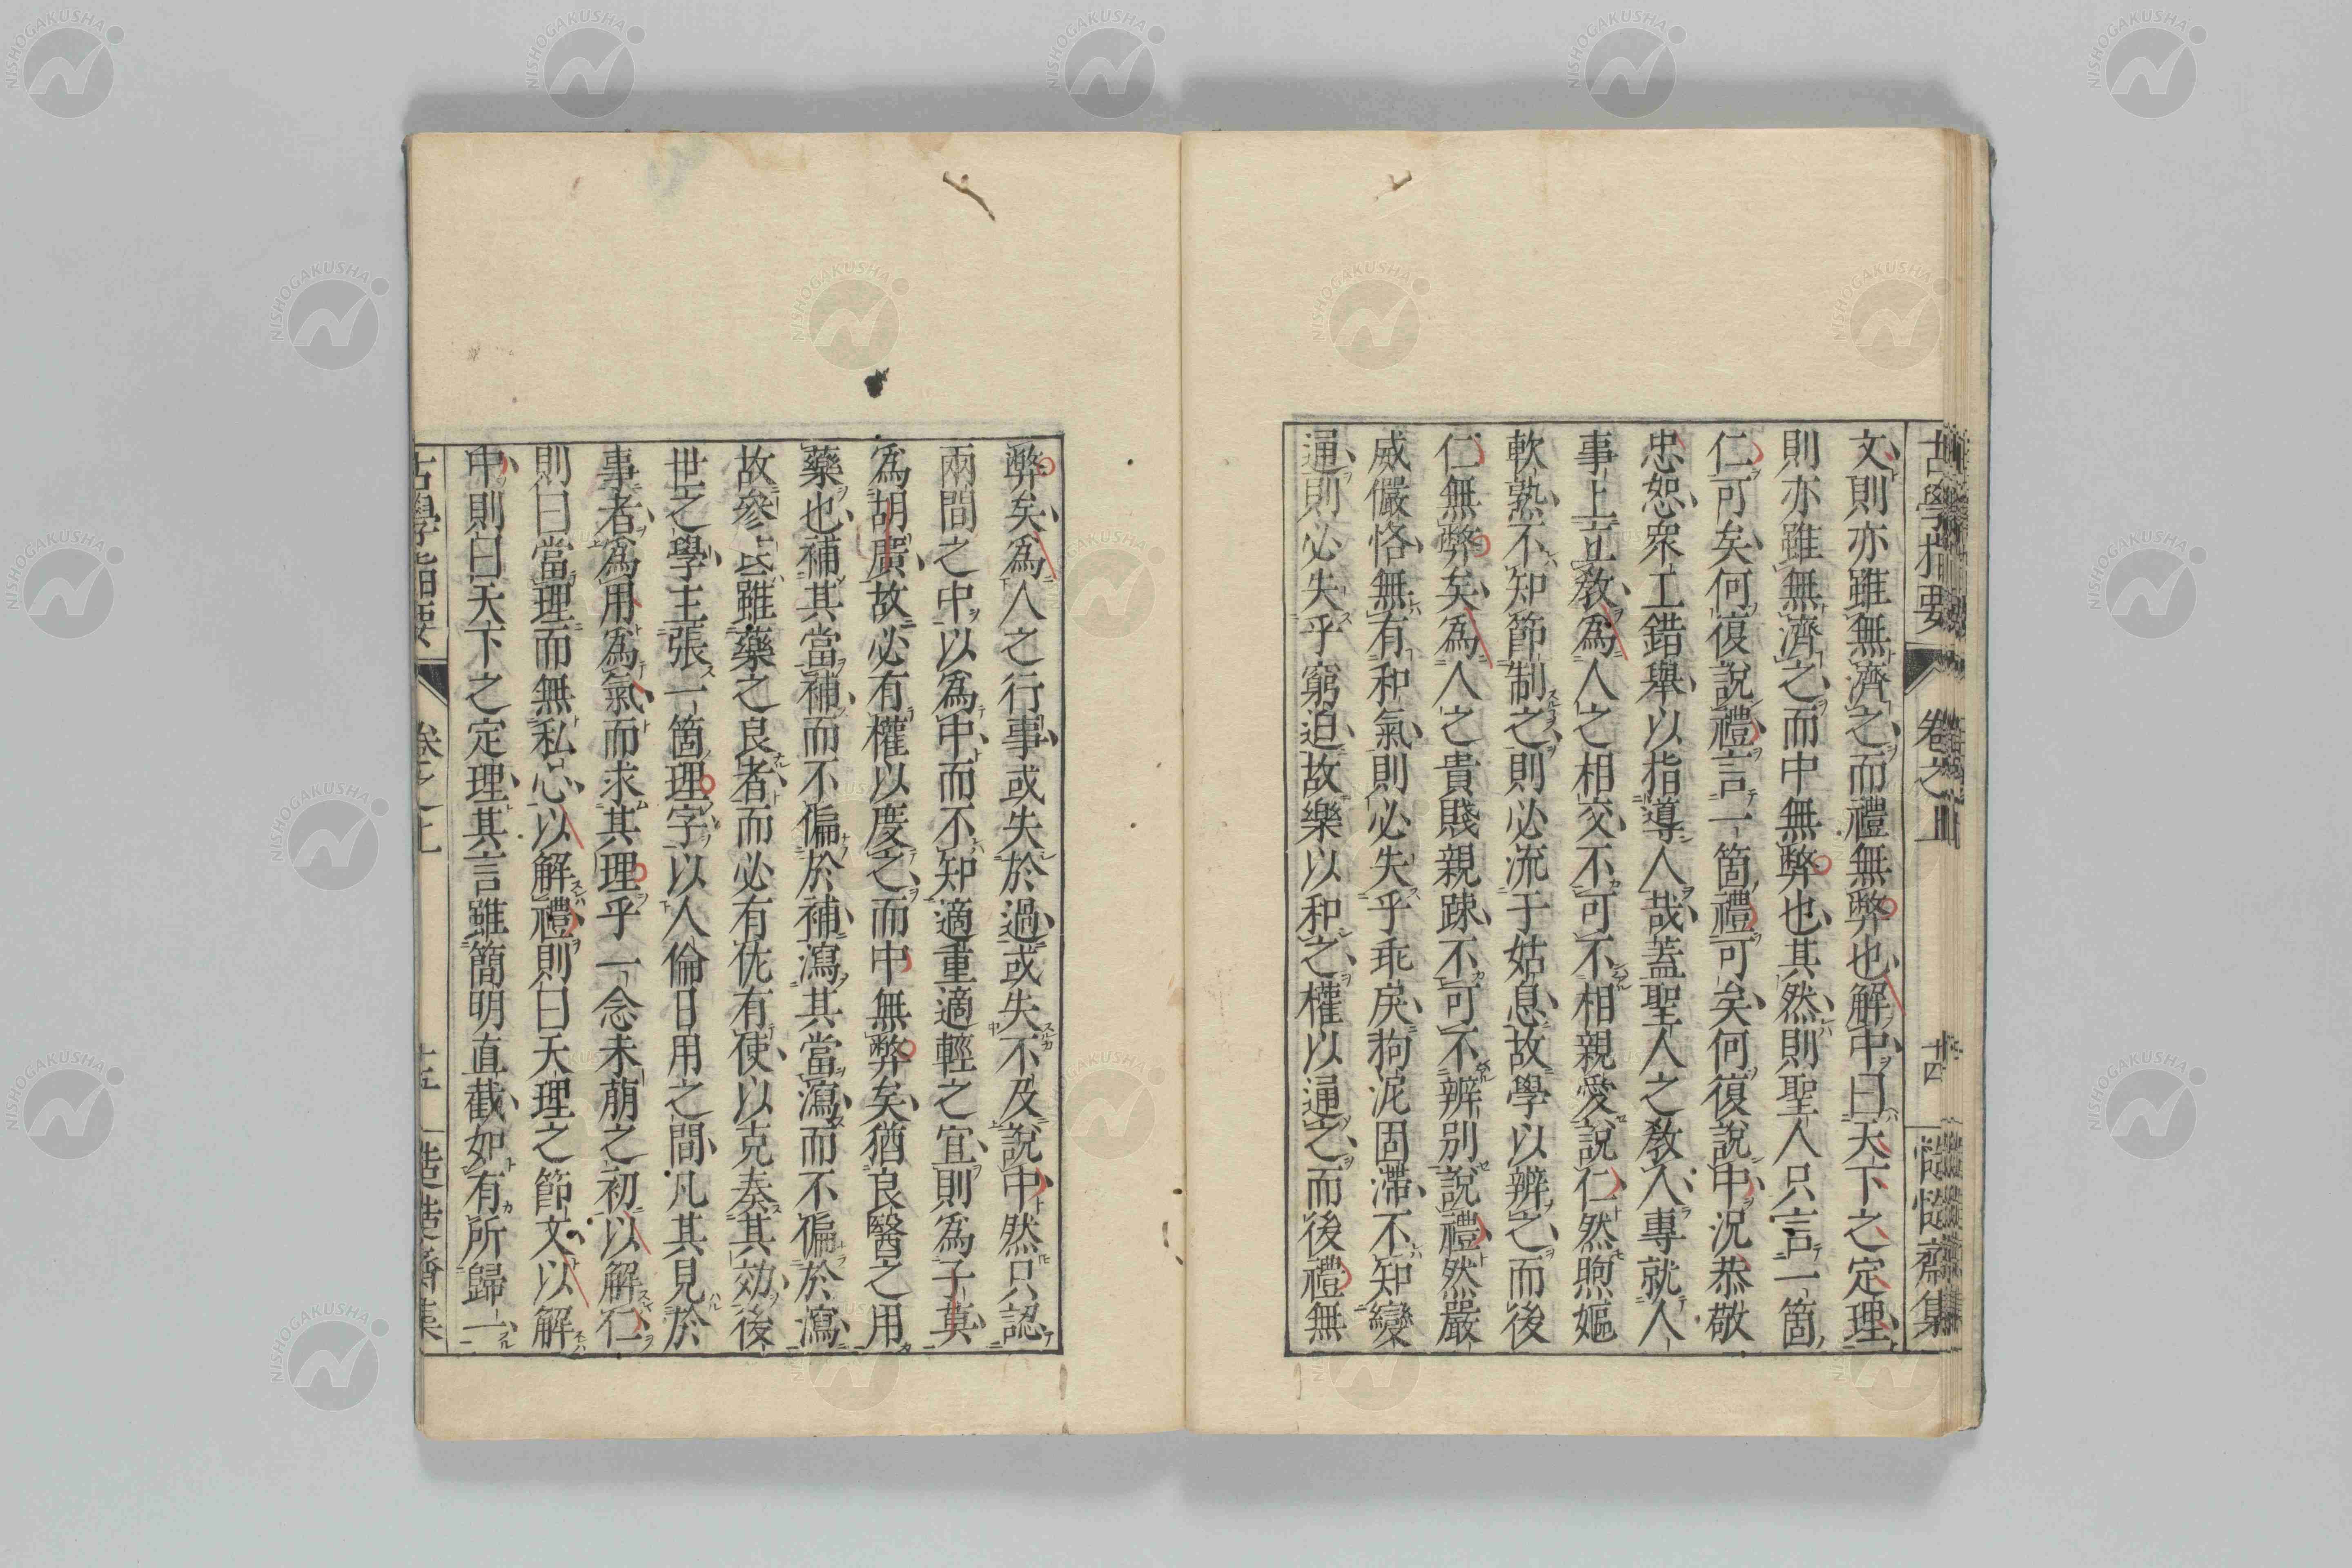 古學指要 卷之上 十四 慥慥齋集
文則亦雖無濟之而禮無弊也解中曰天下之定理
則亦雖無濟之而中無弊也其然則聖人只言一箇
仁可矣何復說禮言一箇禮可矣何復說中況恭敬
忠恕衆工錯舉以指導人哉蓋聖人之教入專就人
事上立教爲人之相交不可不相親愛說仁然煦嫗
軟熟不知節制之則必流于姑息故學以辨之而後
仁無弊矣爲人之貴賤親疎不可不辨別說禮然嚴
威儼恪無有和氣則必失乎乖戾狥泥固滯不知變
通則必失乎窮迫故樂以和之權以通之而後禮無
弊矣爲人之行事或失於過或失不及說中然只認
兩間之中以爲中而不知適重適輕之宜則爲子莫
爲胡廣故必有權以度之而中無弊矣猶良醫之用
藥也補其當補而不偏於補瀉其當瀉而不偏於瀉
故參芪雖藥之良者而必有佐有使以克奏其効後
世之學主張一箇理字以人倫日用之間凡其見於
事者爲用爲氣而求其理乎一念未萠之初以解仁
則曰當理而無私心以解禮則曰天理之節文以解
中則曰天下之定理其言雖簡明直截如有所歸一
古學指要 卷之上 十五 慥慥齋集
NISHOGAKUSHA